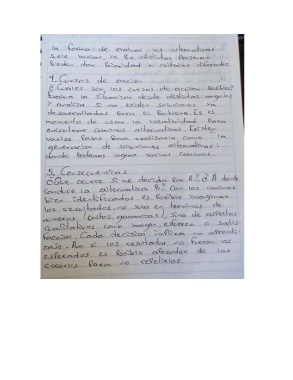 la forma de evaluar las alternativas
suele variar, ya que distintas personas
pueden dar prioridad a criterios diferentes.
4. Cursos de acción
¿Cuáles son los cursos de acción posibles?
Evalua la situación desde distintos angulos
y analiza si no existen soluciones ya
desarrolladas para el problema. Es el
momento de usar la creatividad para
encontrar caminos alternativos. Existen
varias formas para realizarlo como la
generación de soluciones alternativas:
donde podemos lograr varios caminos.
5. Consecuencias
¿Que ocurre si me decido por A? ¿A donde
conduce la alternativa B? Con los caminos
bien identificados es posible imaginar
los resultados, no solo en terminos de
numeros (costos, ganancias), sino de aspectos
cualitativos como imagen, esfuerzo o satis-
facción. Cada decisión implica un aprendi-
zaje. Aun si los resultados no fueron los
esperados es posible aprender de los
errores para no repetirlos.